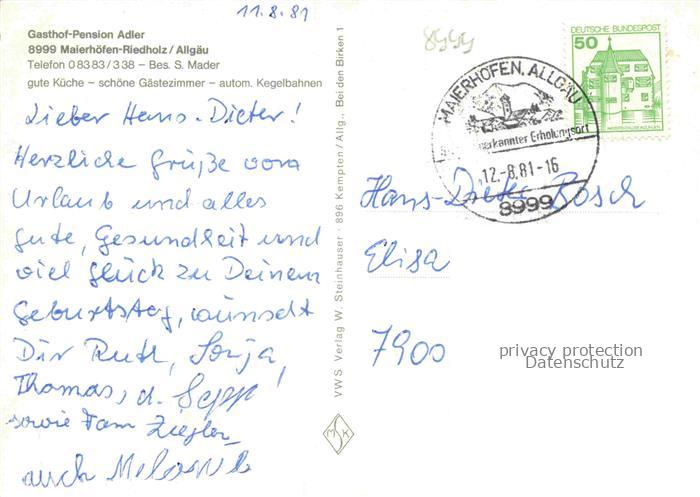 11.8.81
Gasthof-Pension Adler
8999 Maierhöfen-Riedholz / Allgäu
Telefon 0 83 83 / 3 38 – Bes. S. Mader
gute Küche – schöne Gästezimmer – autom. Kegelbahnen
Lieber Hans-Dieter!
Herzliche Grüße vom
Urlaub und alles
gute, Gesundheit und
viel Glück zu Deinem
Geburtstag, wünscht
Dir Ruth, Sonja,
Thomas, u. Sepp!
sowie Fam Ziegler
auch
VWS Verlag W. Steinhauser · 896 Kempten / Allg., Bei den Birken 1
MSK
8999
DEUTSCHE BUNDESPOST
50
MAIERHÖFEN, ALLGÄU
anerkannter Erholungsort
12.-8.81-16
8999
Hans-Dieter Bosch
Elisa
7900
privacy protection
Datenschutz